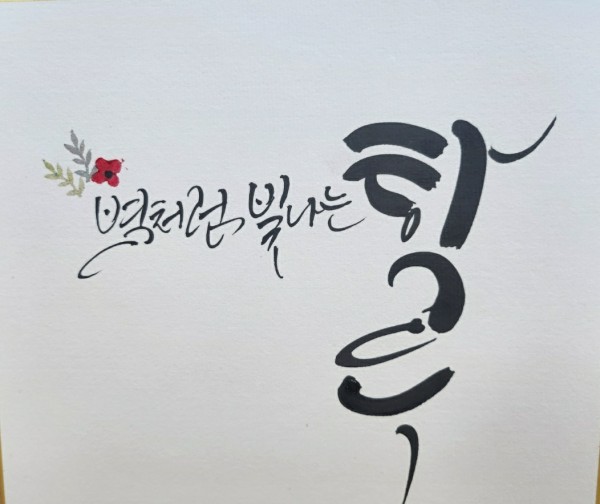 별처럼 빛나는 하루